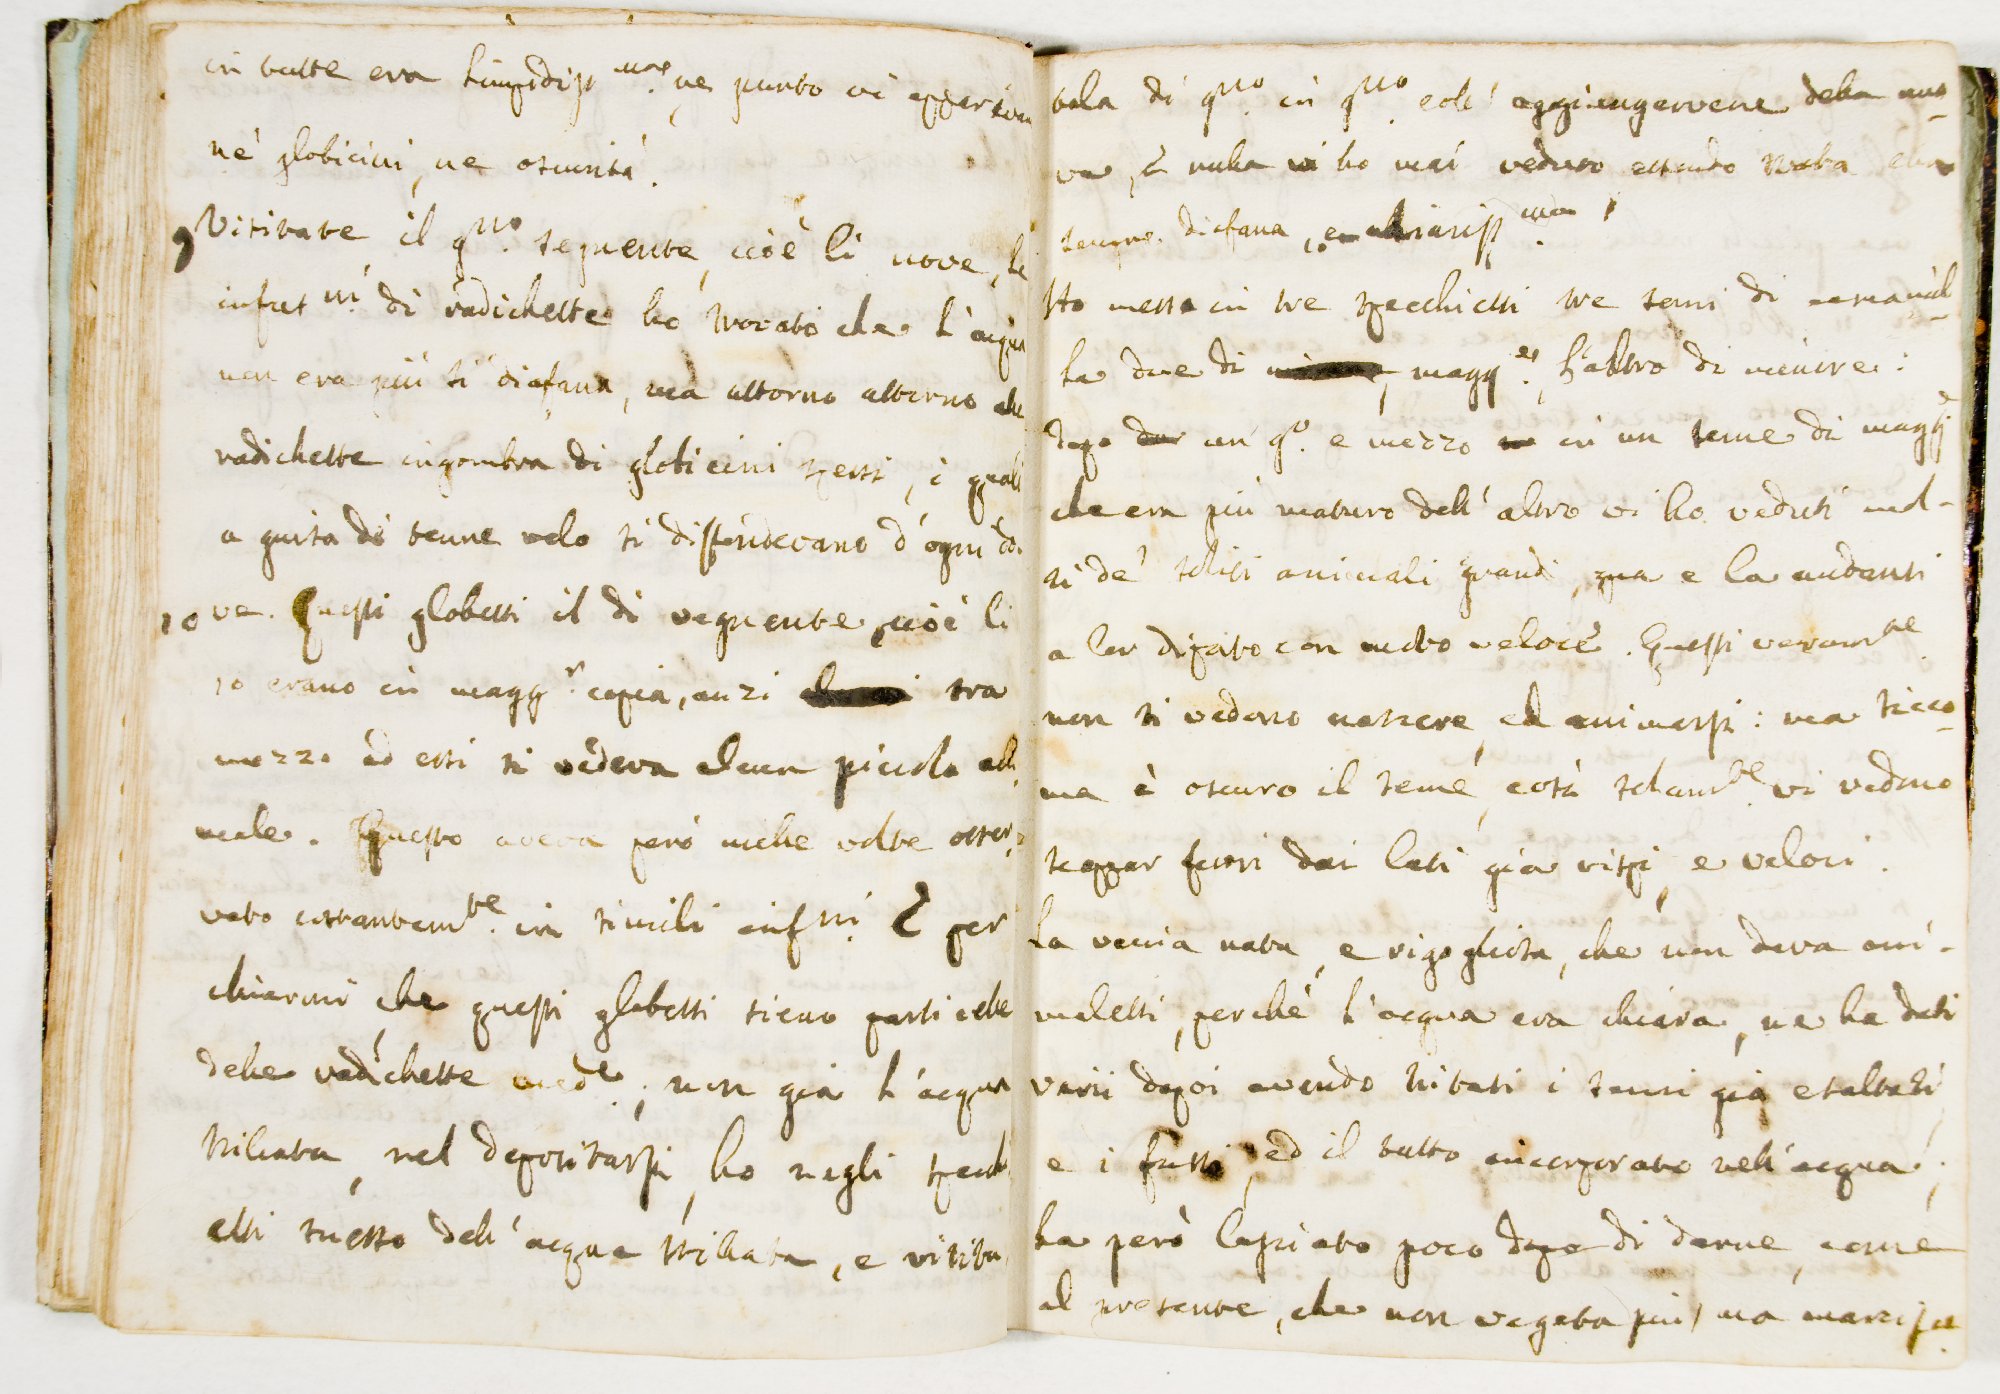 in tutte era limpidiss.ma, ne punto vi apparivan
nè globicini, ne oscurità.
9 Visitate il g.no seguente, cioè li nove, le
infus.ni di radichette ho trovato che l'acqua
non era più sì diafana, ma attorno attorno alle
radichette ingombra di globicini spessi, i quali
a guisa di tenue velo si distendevano d'ogni do-
10 ve. Questi globetti il dì vegnente, cioè li
10 erano in magg.r copia, anzi tra
mezzo ad essi si vedeva alcun piccolo ani-
male. Questo aveva però molte volte osser-
vato costantem.te in simili inf.ni. E per
chiarirmi che questi globetti sieno particelle
delle radichette med.e, non già l'acqua
stillata, nel depositarsi, ho negli specchi-
etti messo dell'acqua stillata, e visita-
tala di g.no in g.no coll'aggiungervene della nuo-
va, e nulla vi ho mai veduto essendo stata ella
sempre diafana, e chiariss.ma
Ho messo in tre specchietti tre semi di cocomeril-
la due di magg.e, l'altro di minore:
dopo un g.o e mezzo in un seme di magg.e
che era più maturo dell'altro vi ho veduti mol-
ti de' soliti animali grandi, qua e la andanti
a lor disposto con moto veloce. Questi veram.te
non si vedono nascere, ed animarsi: ma sicco-
me è oscuro il seme, così solam.te vi vedono
scappar fuori dai lati già vispi, e veloci.
La veccia nata, e rigogliosa, che non dava ani-
maletti, perchè l'acqua era chiara, ne ha dati
varii dopoi avendo tritati i semi già esaltati,
e i fusti, ed il tutto incorporato nell'acqua;
ha però lasciato poco dopo di darne, come
al presente, che non vegeta più, ma marcisce.